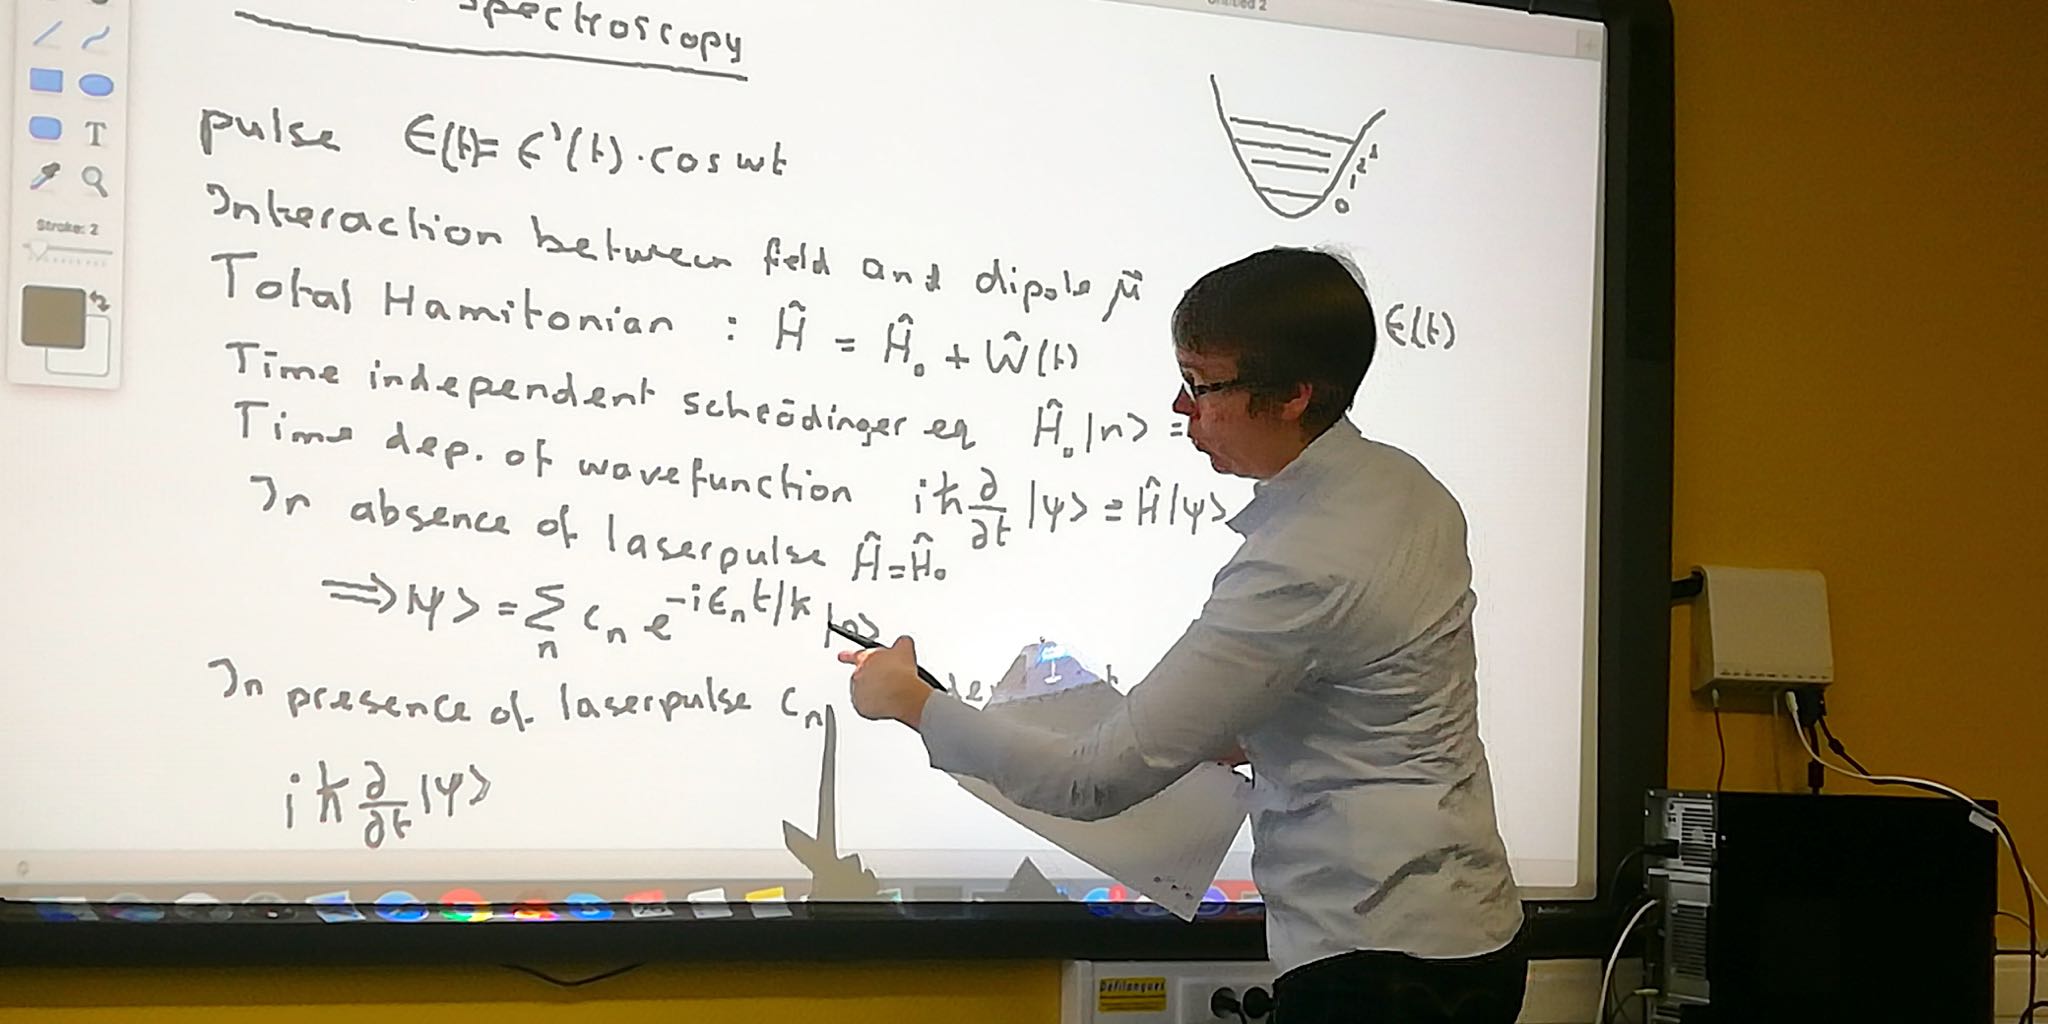 Untitled 2
spectroscopy
T
Stroke: 2
pulse ϵ(t)= ϵ'(t)·cos ωt
3
2
1
0
Interaction between field and dipole μ⃗
ϵ(t)
Total Hamitonian : Ĥ = Ĥ₀ + Ŵ(t)
Time independent schrödinger eq Ĥ₀|n> =
Time dep. of wavefunction iħ ∂/∂t |ψ> = Ĥ|ψ>
In absence of laserpulse Ĥ=Ĥ₀
⟹|ψ> = Σₙ cₙ e^(-iϵₙt/ħ) |n>
In presence of laserpulse cₙ
iħ ∂/∂t |ψ>
Défilangues